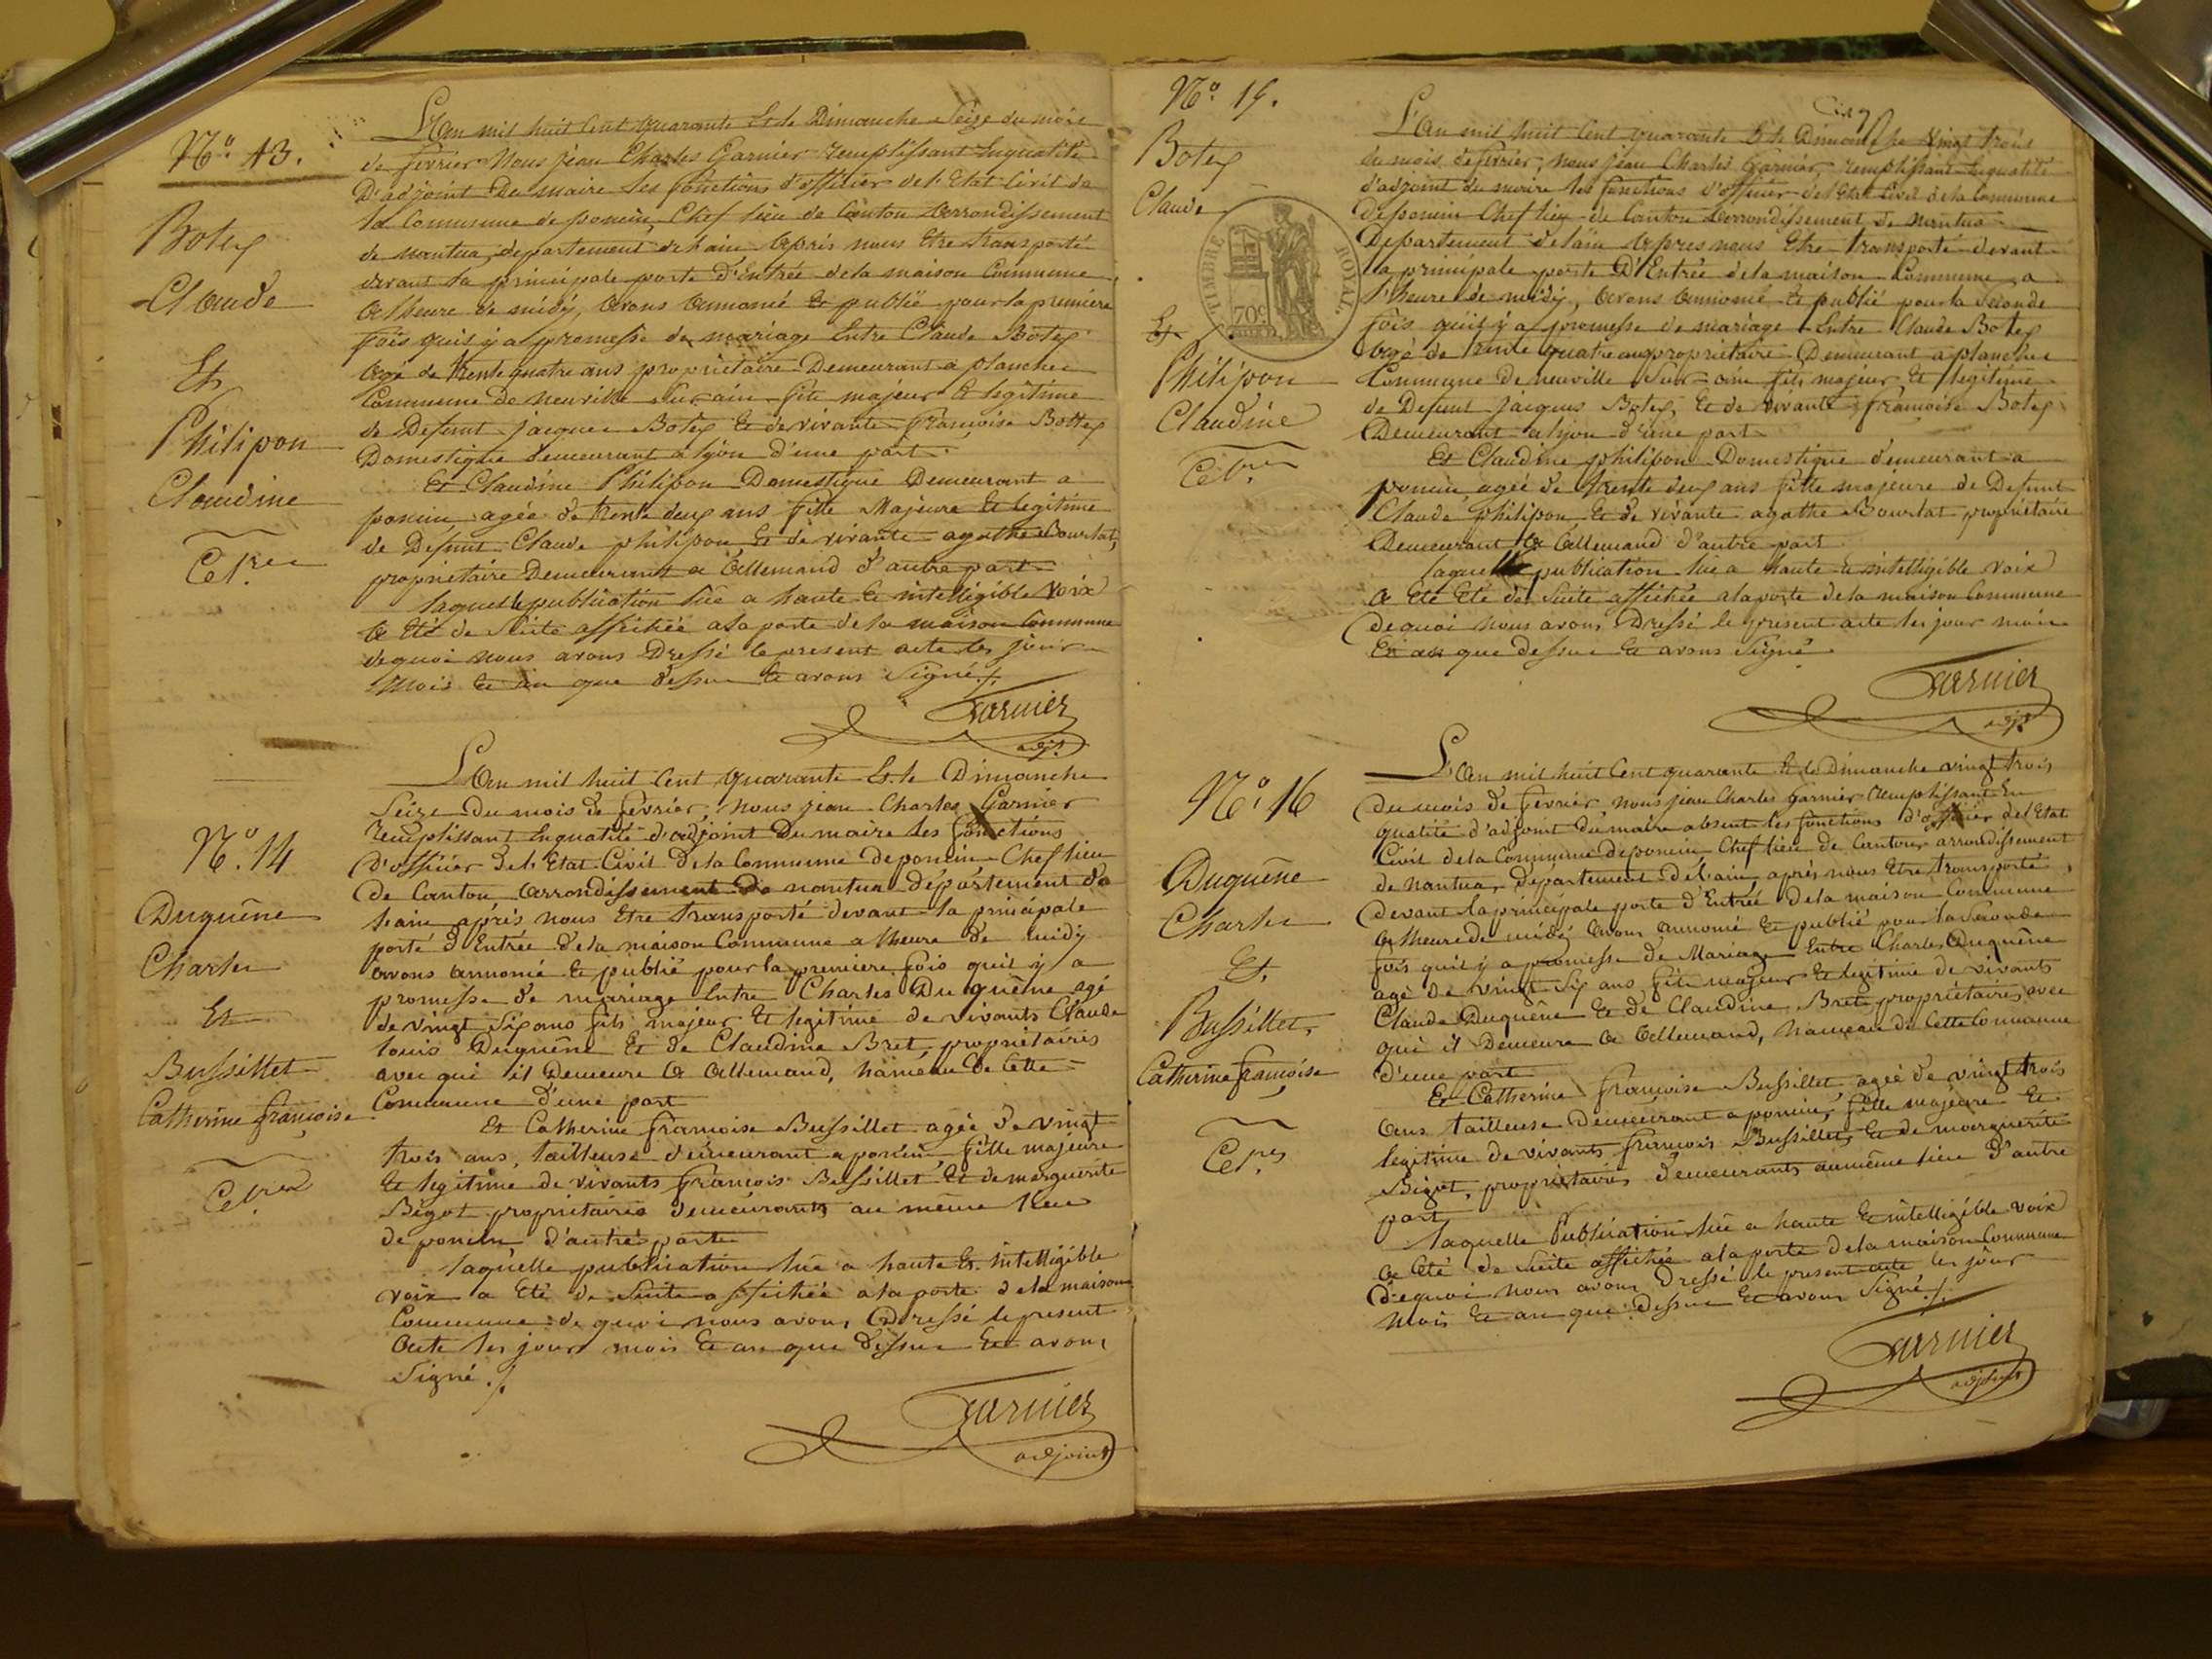 N.º 13.
Botex
Claude
Et
Philipon
Claudine
L'An mil huit Cent quarante Et le Dimanche Seize du mois
de fevrier Nous jean Charles Garnier remplissant Enqualité
D'adjoint Du maire les fonctions d'officier del'Etat Civil de
la Commune de poncin, Chef lieu de Canton Arrondissement
de nantua, departement del'ain Après nous Etre transporté
devant la principale porte d'Entrée dela maison Commune,
a l'heure de midy, avons Annoncé Et publié pour la premiere
fois quil y a promesse de mariage Entre Claude Botex
Agé de trente quatre ans proprietaire Demeurant a planche
Commune de neuville Sur ain fils majeur Et legitime
de Defunt jacques Botex Et de vivante francoise Bottex
Domestique demeurant a lyon d'une part
Et Claudine Philipon Domestique Demeurant a
poncin agée de trente deux ans fille Majeure Et legitime
de Defunt Claude philipon Et de vivante agathe Bourlat,
proprietaire Demeurant a Allemand d'autre part
laquelle publication lue a haute Et intelligible Voix
a Eté de Suite affichée ala porte dela maison Commune
dequoi nous avons Dressé le present acte les jour
Mois Et an que dessus Et avons Signé
Garnier
adjt
N.º 14
Duquêne
Charles
Et
Bussillet
Catherine françoise
L'An mil huit Cent quarante Et le Dimanche
Seize Du mois de fevrier, nous jean Charles Garnier
remplissant Enqualité d'adjoint Du maire les fonctions
D'officier del'Etat Civil Dela Commune deponcin Chef lieu
de Canton Arrondissement de nantua département de
l'ain après nous Etre transporté devant la principale
porte d'Entrée dela maison Commune a l'heure de midy
avons annoncé Et publié pour la premiere fois quil y a
promesse de mariage Entre Charles Duquêne agé
de vingt Six ans fils majeur Et legitime de vivants Claude
louis Duquêne Et de Claudine Bret proprietaires
avec qui il Demeure a Allemand, hameau De Cette
Commune d'une part
Et Catherine francoise Bussillet agée de vingt
trois ans, tailleuse demeurant a poncin fille majeure
Et legitime de vivants francois Bussillet Et de marguerite
Bigot proprietaires demeurants au même lieu
de poncin d'autre part
laquelle publication lue a haute Et intelligible
voix a Eté de Suite affichée ala porte dela maison
Commune de quoi nous avons Dressé le present
Acte les jour mois Et an que dessus Et avons
Signé
Garnier
adjoint
N.º 15.
Botex
Claude
Et
Philipon
Claudine
TIMBRE ROYAL
70c
Cinq
L'An mil huit Cent quarante Et le Dimanche vingt trois
du mois de fevrier, nous jean Charles Garnier, remplissant Enqualité
d'adjoint du maire les fonctions d'officier del'Etat Civil dela Commune
deponcin Chef lieu de Canton Arrondissement de nantua
Departement del'ain Après nous Etre transporté devant
la principale porte D'Entrée dela maison Commune a
l'heure de midy, avons Annoncé Et publié pour la Seconde
fois quil y a promesse de mariage Entre Claude Botex
Agé de trente quatre ans proprietaire Demeurant a planche
Commune de neuville Sur ain fils majeur Et legitime
de Defunt jacques Botex, Et de vivante francoise Botex
Demeurant a lyon d'une part
Et Claudine philipon Domestique demeurant a
poncin agée de trente deux ans fille majeure de Defunt
Claude philipon Et de vivante agathe Bourlat proprietaire
Demeurant a Allemand d'autre part
laquelle publication lue a haute Et intelligible voix
a Eté Eté de Suite affichée ala porte dela maison Commune
dequoi nous avons Dressé le present acte les jour mois
Et an que dessus Et avons Signé
Garnier
adjt
N.º 16
Duquêne
Charles
Et
Bussillet,
Catherine françoise
L'An mil huit Cent quarante Et le Dimanche vingt trois
Du mois de fevrier nous jean Charles Garnier remplissant En
qualité d'adjoint du maire absent les fonctions d'officier del'Etat
Civil dela Commune deponcin Chef lieu de Canton arrondissement
de Nantua, departement del'ain, après nous Etre transporté
devant la principale porte d'Entrée dela maison Commune
a lheure de midy avons annoncé Et publié pour la Seconde
fois quil y a promesse de Mariage Entre Charles Duquêne
agé de vingt Six ans fils majeur Et legitime de vivants
Claude Duquêne Et de Claudine Bret, proprietaires avec
qui il Demeure a Allemand, hameau de Cette Commune
d'une part
Et Catherine francoise Bussillet agée de vingt trois
Ans tailleuse demeurant a poncin, fille majeure Et
legitime de vivants francois Bussillet, Et de marguerite
Bigot, proprietaires demeurants aumême lieu d'autre
part
laquelle Publication lue a haute Et intelligible voix
a Eté de Suite affichée ala porte dela maison Commune
dequoi nous avons Dressé le present acte les jour
mois Et an que Dessus Et avons Signé
Garnier
adjoint